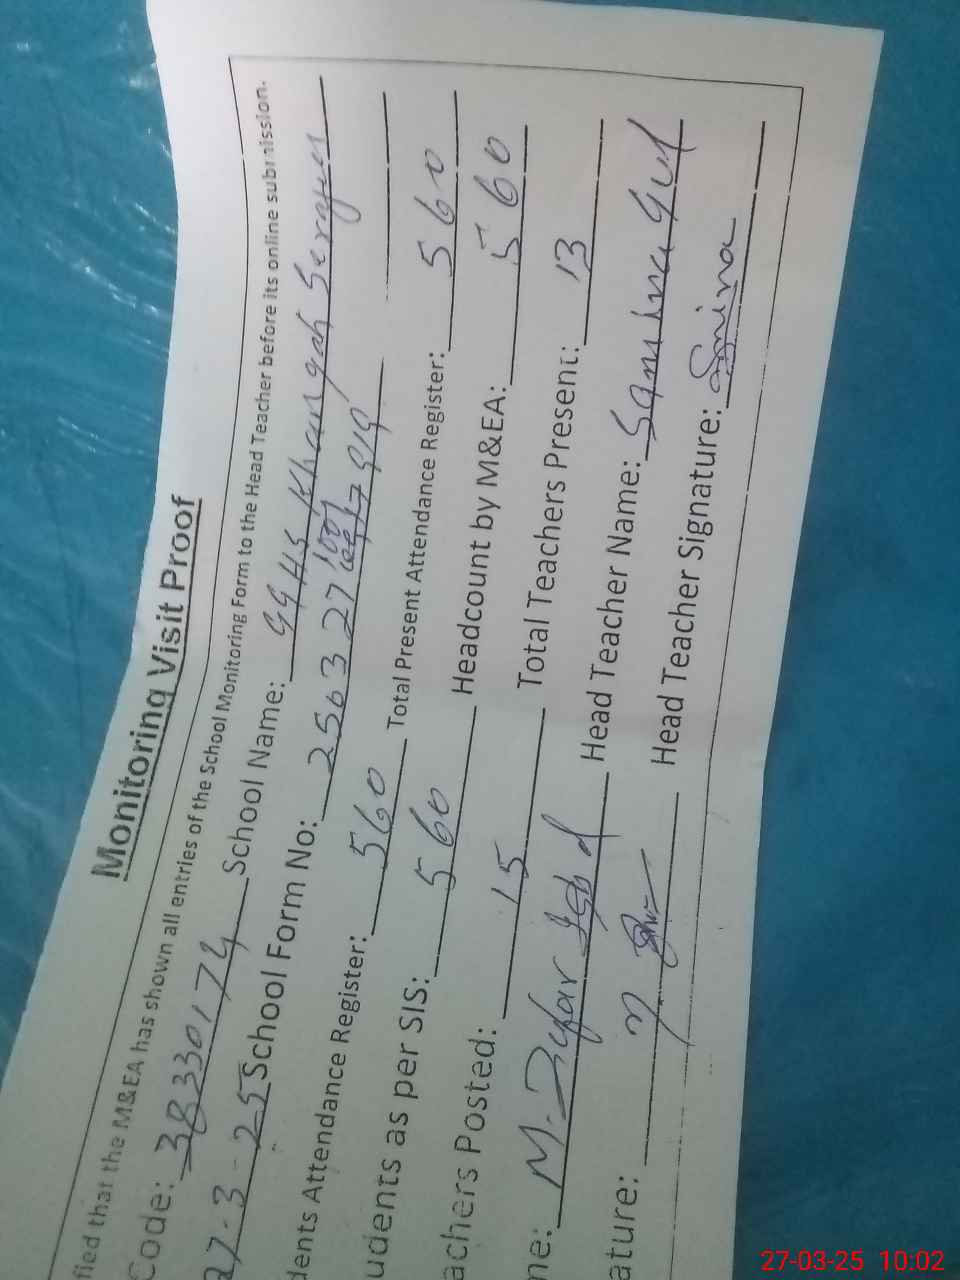 Monitoring Visit Proof
fied that the M&EA has shown all entries of the School Monitoring Form to the Head Teacher before its online submission.
Code: 38330174 School Name: GGHS Khangah Serajia
27-3-25 School Form No: 2563 27
dents Attendance Register: 560 Total Present Attendance Register: 560
udents as per SIS: 560 Headcount by M&EA: 560
achers Posted: 15 Total Teachers Present: 13
ne: M. Zafar Iqbal Head Teacher Name: Samina Gul
ature: Head Teacher Signature: Samina
27-03-25 10:02